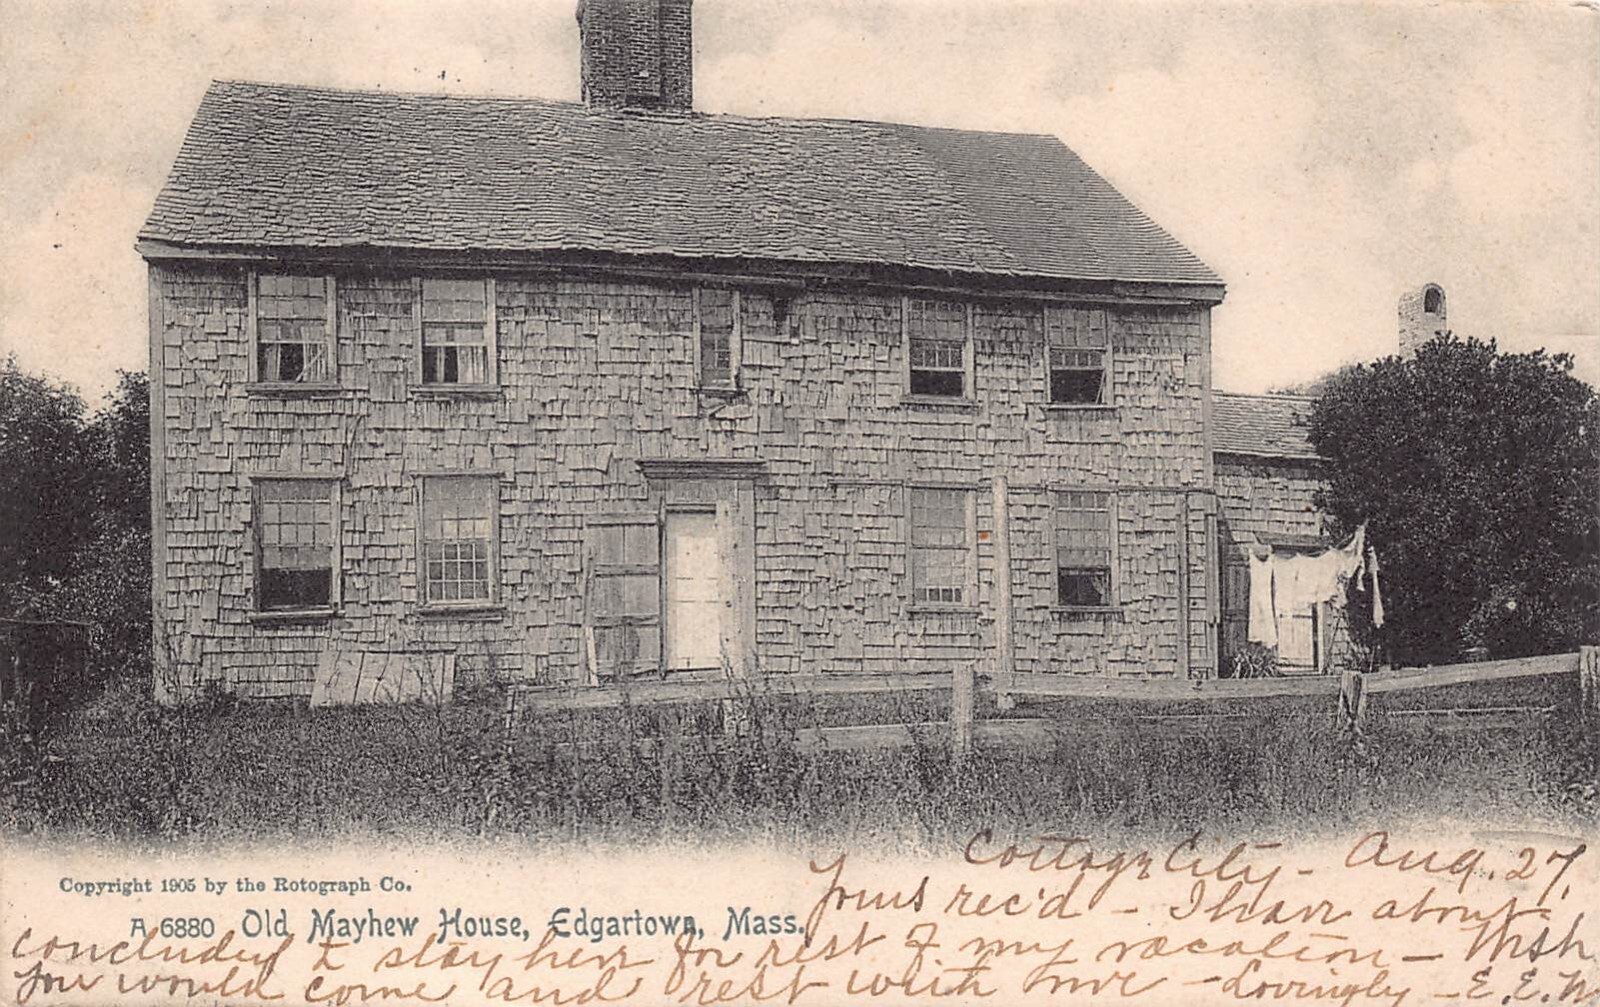 Cottage City - Aug. 27,
Copyright 1905 by the Rotograph Co.
Yours rec'd - I have about
A 6880 Old Mayhew House, Edgartown, Mass.
concluded to stay here for rest of my vacation - Wish
you would come and rest with me - Lovingly - E. E.